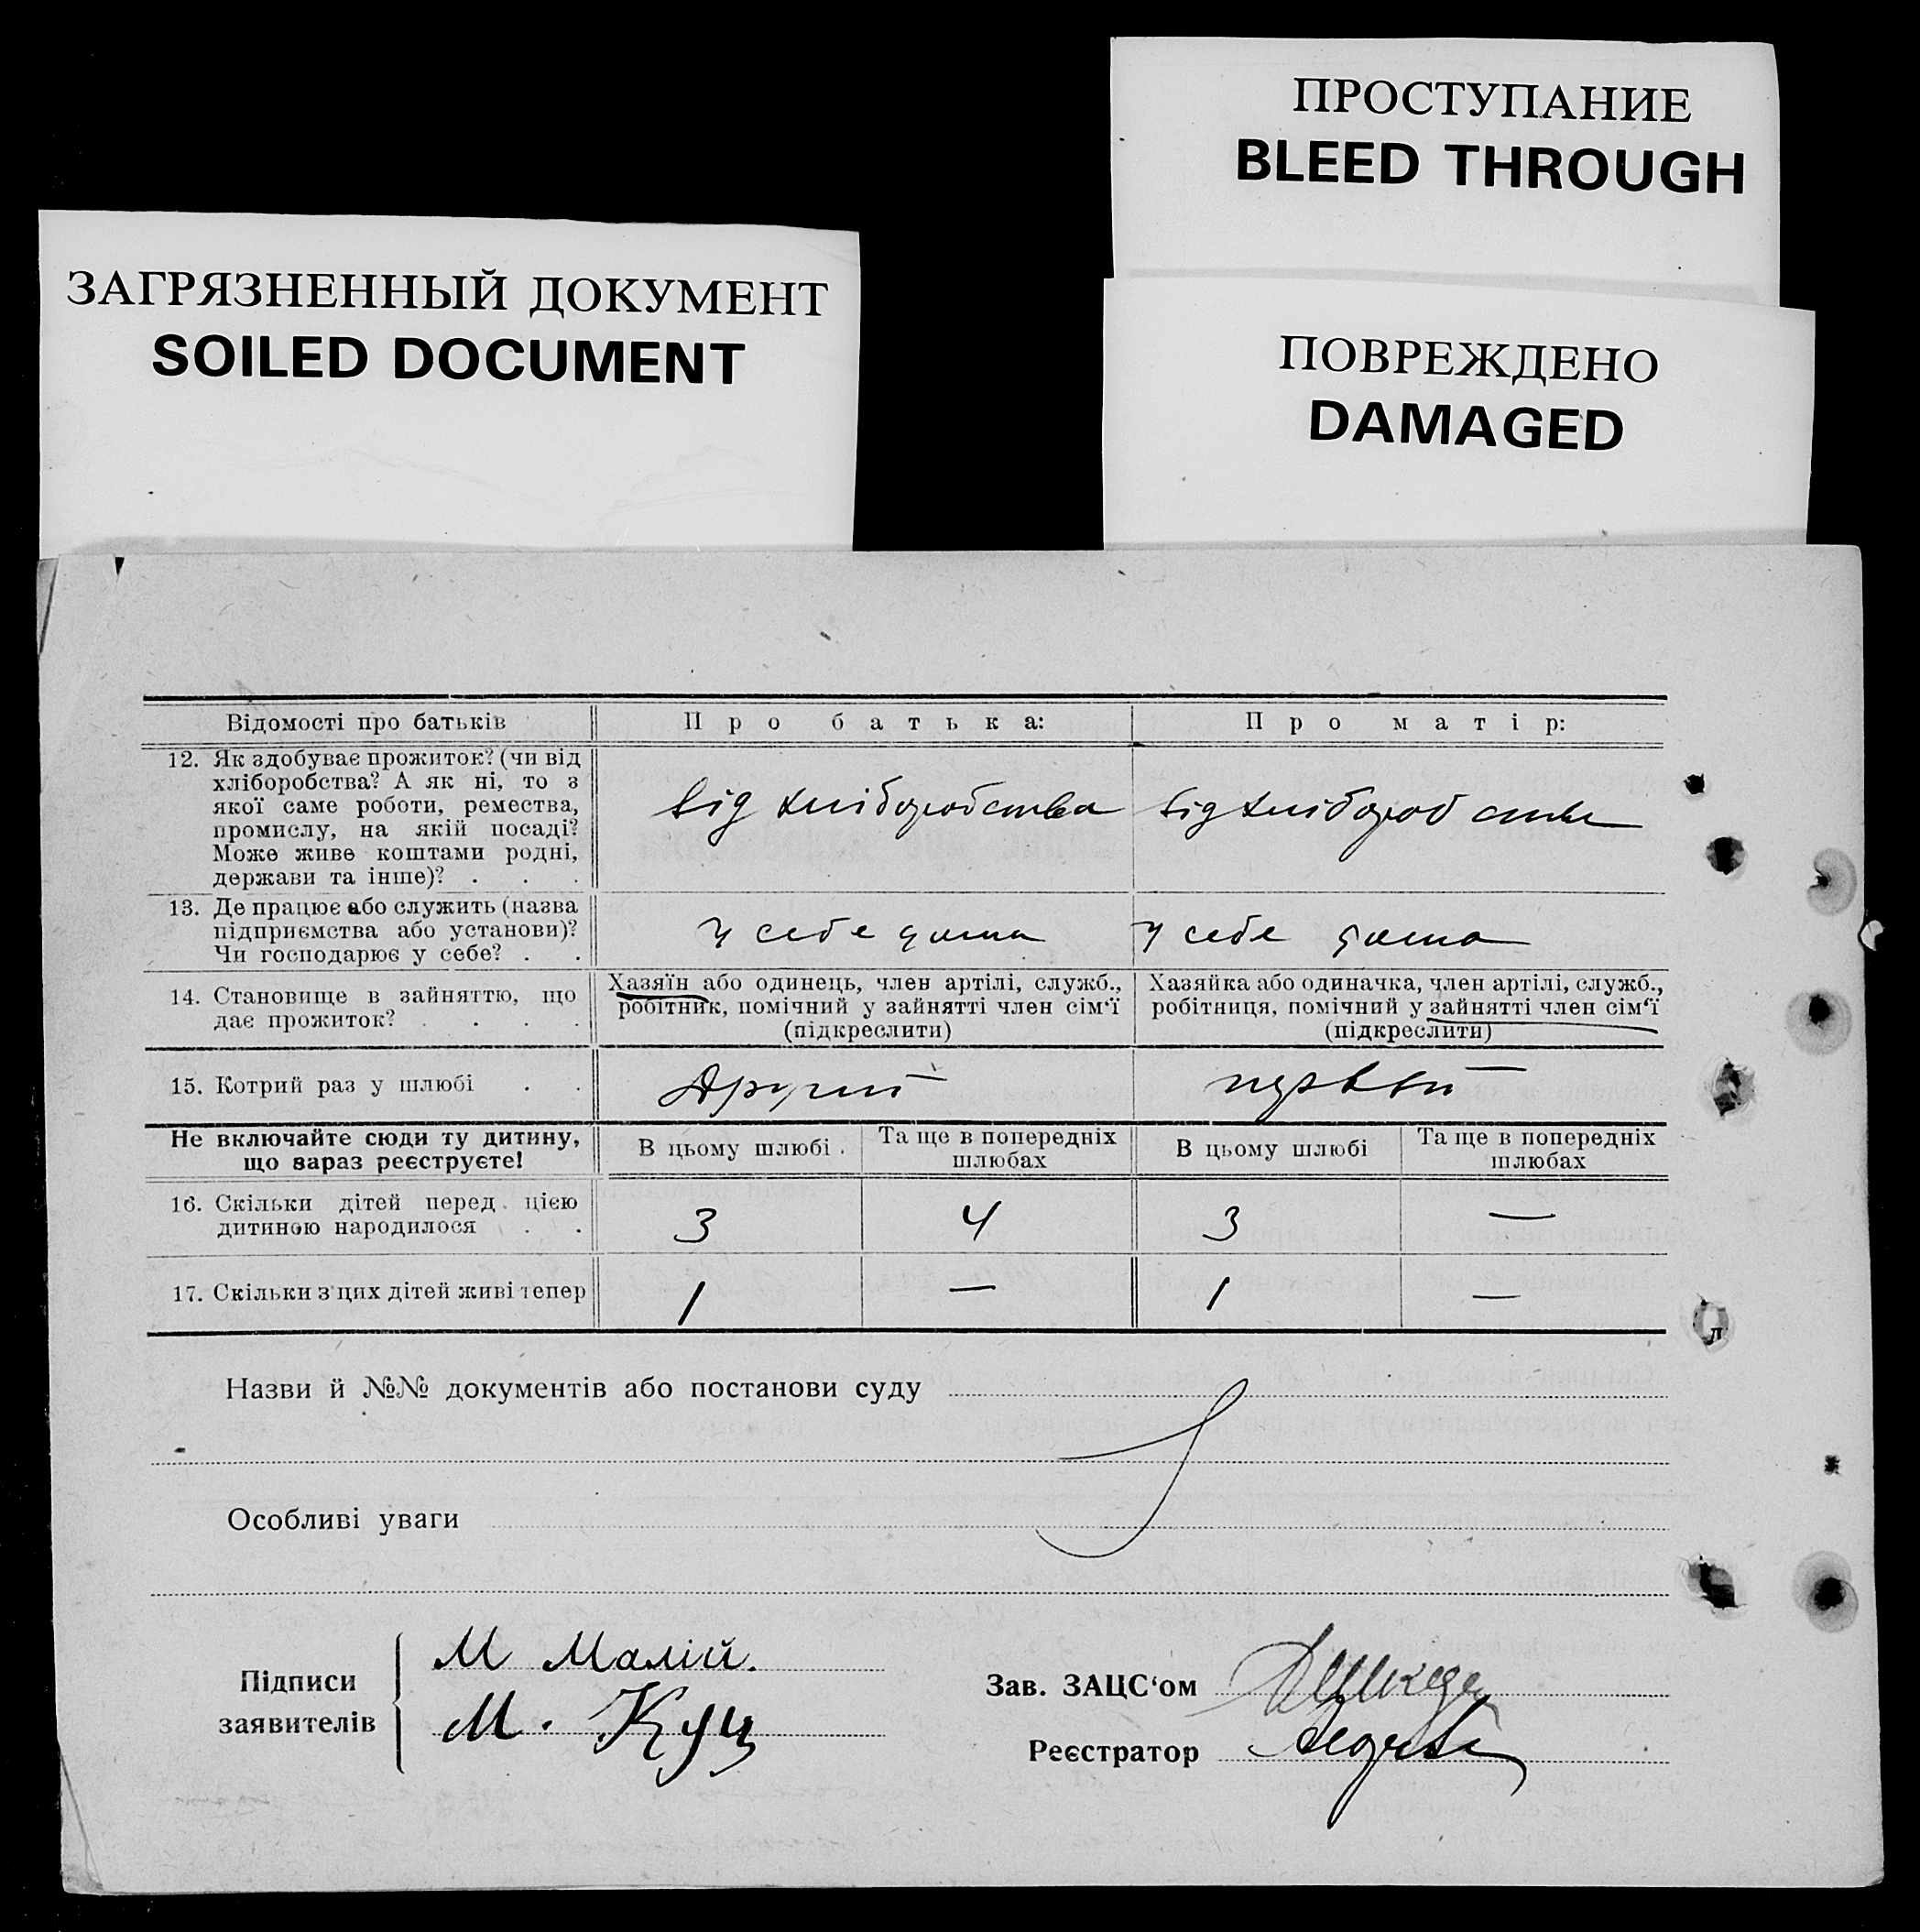 ПРОСТУПАНИЕ
BLEED THROUGH
ЗАГРЯЗНЕННЫЙ ДОКУМЕНТ
SOILED DOCUMENT
ПОВРЕЖДЕНО
DAMAGED
Відомості про батьків
Про батька:
Про матір:
12. Як здобуває прожиток? (чи від
хліборобства? А як ні, то з
якої саме роботи, ремества,
промислу, на якій посаді?
Може живе коштами родні,
держави та інше)? . . .
від хліборобства
від хліборобства
13. Де працює або служить (назва
підприємства або установи)?
Чи господарює у себе? . .
у себе дома
у себе дома
14. Становище в зайняттю, що
дає прожиток? . . . .
Хазяїн або одинець, член артілі, служб.,
робітник, помічний у зайнятті член сім‘ї
(підкреслити)
Хазяйка або одиначка, член артілі, служб.,
робітниця, помічний у зайнятті член сім‘ї
(підкреслити)
15. Котрий раз у шлюбі . .
Другий
первый
Не включайте сюди ту дитину,
що зараз реєструєте!
В цьому шлюбі .
Та ще в попередніх
шлюбах
В цьому шлюбі
Та ще в попередніх
шлюбах
16. Скільки дітей перед цією
дитиною народилося . .
3
4
3
—
17. Скільки з цих дітей живі тепер
1
—
1
—
Назви й №№ документів або постанови суду
Особливі уваги
Підписи
заявителів
М Малій.
М. Куц
Зав. ЗАЦС‘ом
Реєстратор